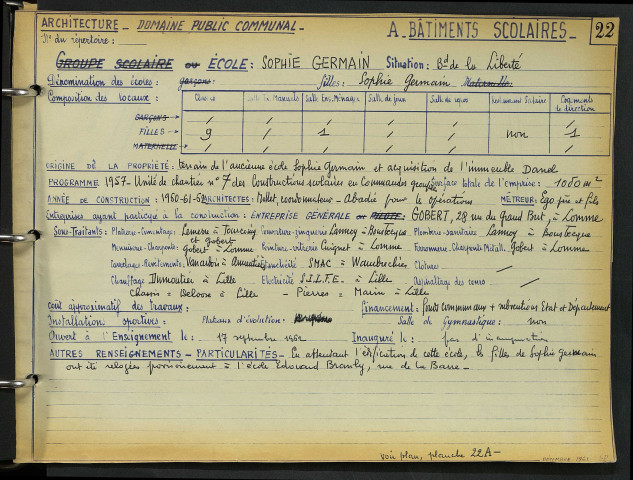 ARCHITECTURE - DOMAINE PUBLIC COMMUNAL - A - BÂTIMENTS SCOLAIRES - 22
N° du répertoire :
GROUPE SCOLAIRE ou ÉCOLE : SOPHIE GERMAIN Situation : Bd de la Liberté
Dénomination des écoles : garçons : filles : Sophie Germain Maternelle :
Composition des locaux : Classes Salle Tr. Manuels Salle Ens. Ménager Salle de jeux Salle de repos Restaurant Scolaire Logements de direction
GARÇONS → / / / / / / /
FILLES → 9 / 1 / / non 1
MATERNELLE → / / / / / / /
ORIGINE DE LA PROPRIÉTÉ : terrain de l'ancienne école Sophie Germain et acquisition de l'immeuble Danel
PROGRAMME 1957 - Unité de chantier n° 7 des Constructions scolaires en Commandes Surface totale de l'emprise : 1080 m²
ANNÉE DE CONSTRUCTION : 1960-61-62 ARCHITECTES : coordonnateur - Abadie pour l'opération MÉTREUR : Ego père et fils
Entreprises ayant participé à la construction : ENTREPRISE GÉNÉRALE ou PILOTE : GOBERT, 28 rue du Grand But, à Lomme
Sous-Traitants : Plafonds-Cimentage : à Tourcoing et Gobert Couverture-zinguerie Lannoy à Bousbecque Plomberie-sanitaire Lannoy à Bousbecque
Menuiserie-Charpente : Gobert à Lomme Peinture-vitrerie à Lomme Ferronnerie-Charpente Métall. Gobert à Lomme
Carrelage-Revêtements : à Armentières Etanchéité SMAC à Wambrechies Clôtures - /
Chauffage Dumoutier à Lille Electricité à Lille Asphaltage des cours /
Chassis = à Lille - Pierres = Marin à Lille
Coût approximatif des travaux : Financement : fonds communaux + subventions Etat et Département
Installations sportives : Plateaux d'évolution : Salle de Gymnastique : non
Ouvert à l'Enseignement le : 17 septembre 1962 Inauguré le : pas d'inauguration
AUTRES RENSEIGNEMENTS - PARTICULARITÉS - En attendant l'édification de cette école, les filles de Sophie Germain
ont été relogées provisoirement à l'école Edouard Branly, rue de la Barre -
voir plan, planche 22A -